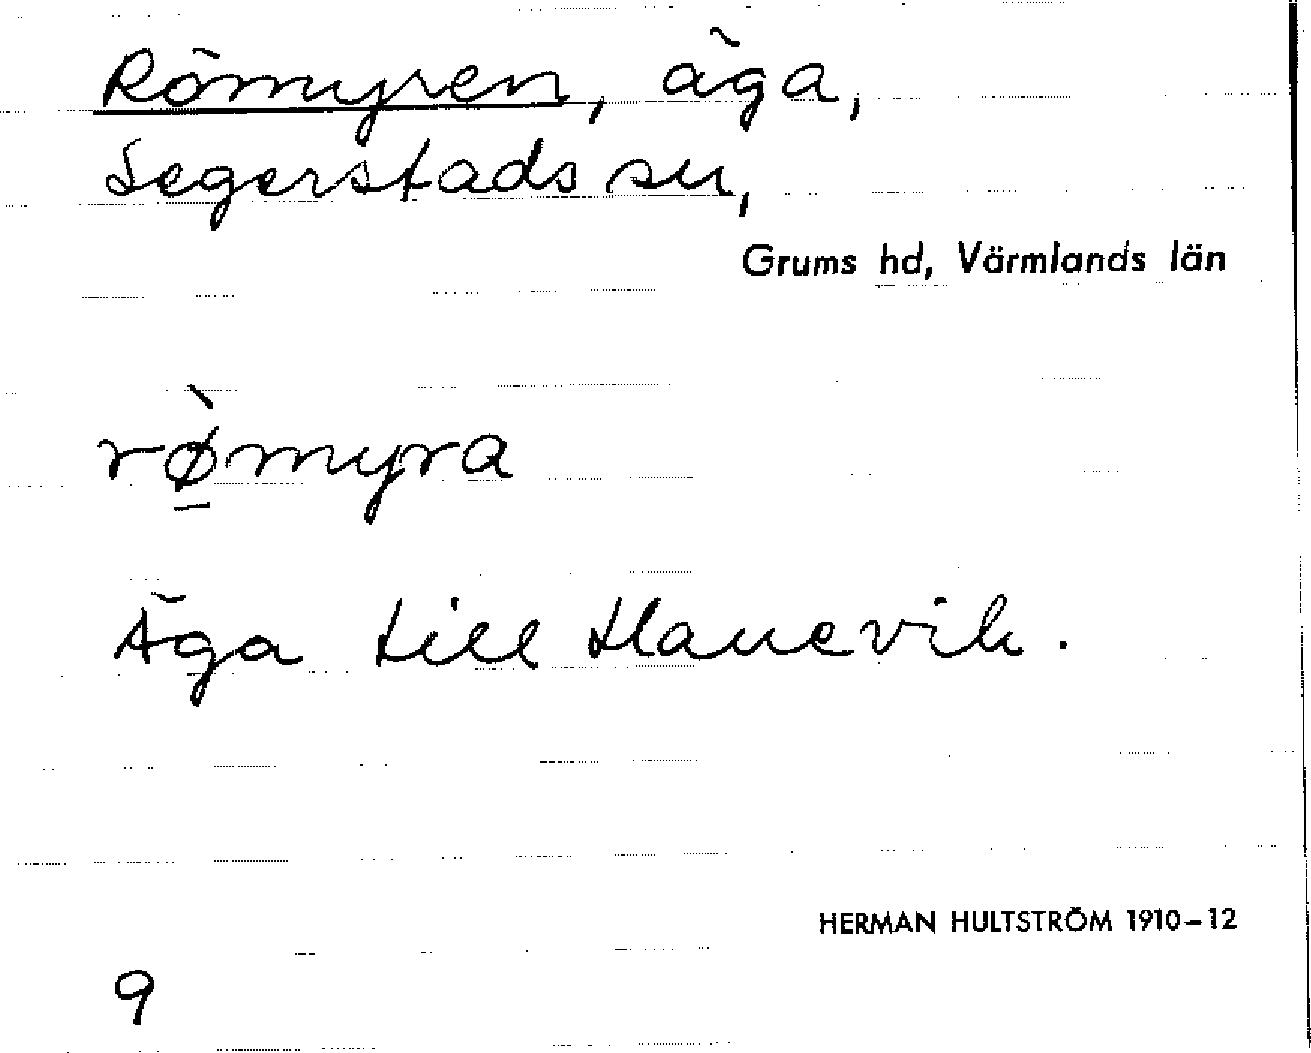 Römyren, äga,
Segerstads sn,
Grums hd, Värmlands län
rø̱̀myra
Äga till Hanevik.
HERMAN HULTSTRÖM 1910–12
9